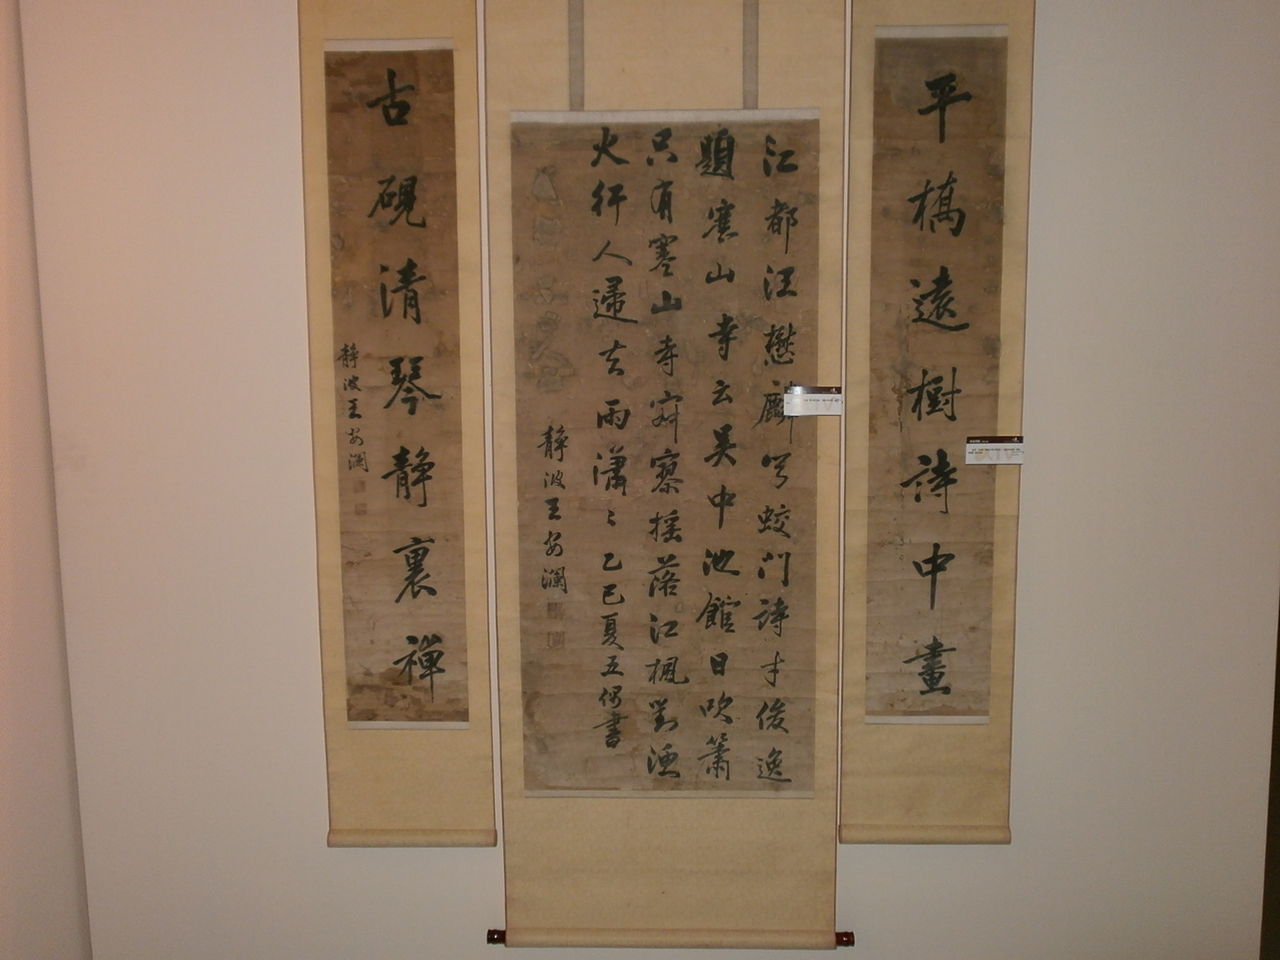 平橋遠樹詩中畫
江都汪懋麟字蛟門詩才俊逸
題寒山寺云吳中池館日吹簫
只有寒山寺寂寥搖落江楓對漁
火行人歸去雨瀟〻乙巳夏五偶書
靜波王安瀾
古硯清琴靜裏禪
靜波王安瀾